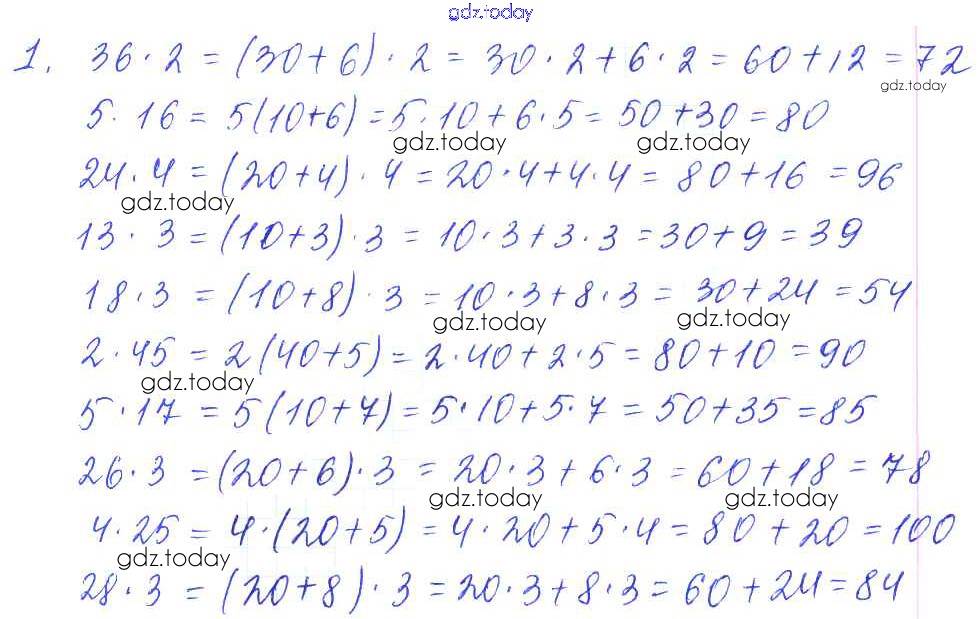 gdz.today
1. 36 · 2 = (30 + 6) · 2 = 30 · 2 + 6 · 2 = 60 + 12 = 72
gdz.today
5 · 16 = 5(10+6) = 5 · 10 + 6 · 5 = 50 + 30 = 80
gdz.today gdz.today
24 · 4 = (20 + 4) · 4 = 20 · 4 + 4 · 4 = 80 + 16 = 96
gdz.today
13 · 3 = (10 + 3) · 3 = 10 · 3 + 3 · 3 = 30 + 9 = 39
18 · 3 = (10 + 8) · 3 = 10 · 3 + 8 · 3 = 30 + 24 = 54
gdz.today gdz.today
2 · 45 = 2(40 + 5) = 2 · 40 + 2 · 5 = 80 + 10 = 90
gdz.today
5 · 17 = 5(10 + 7) = 5 · 10 + 5 · 7 = 50 + 35 = 85
26 · 3 = (20 + 6) · 3 = 20 · 3 + 6 · 3 = 60 + 18 = 78
gdz.today gdz.today
4 · 25 = 4 · (20 + 5) = 4 · 20 + 5 · 4 = 80 + 20 = 100
gdz.today
28 · 3 = (20 + 8) · 3 = 20 · 3 + 8 · 3 = 60 + 24 = 84